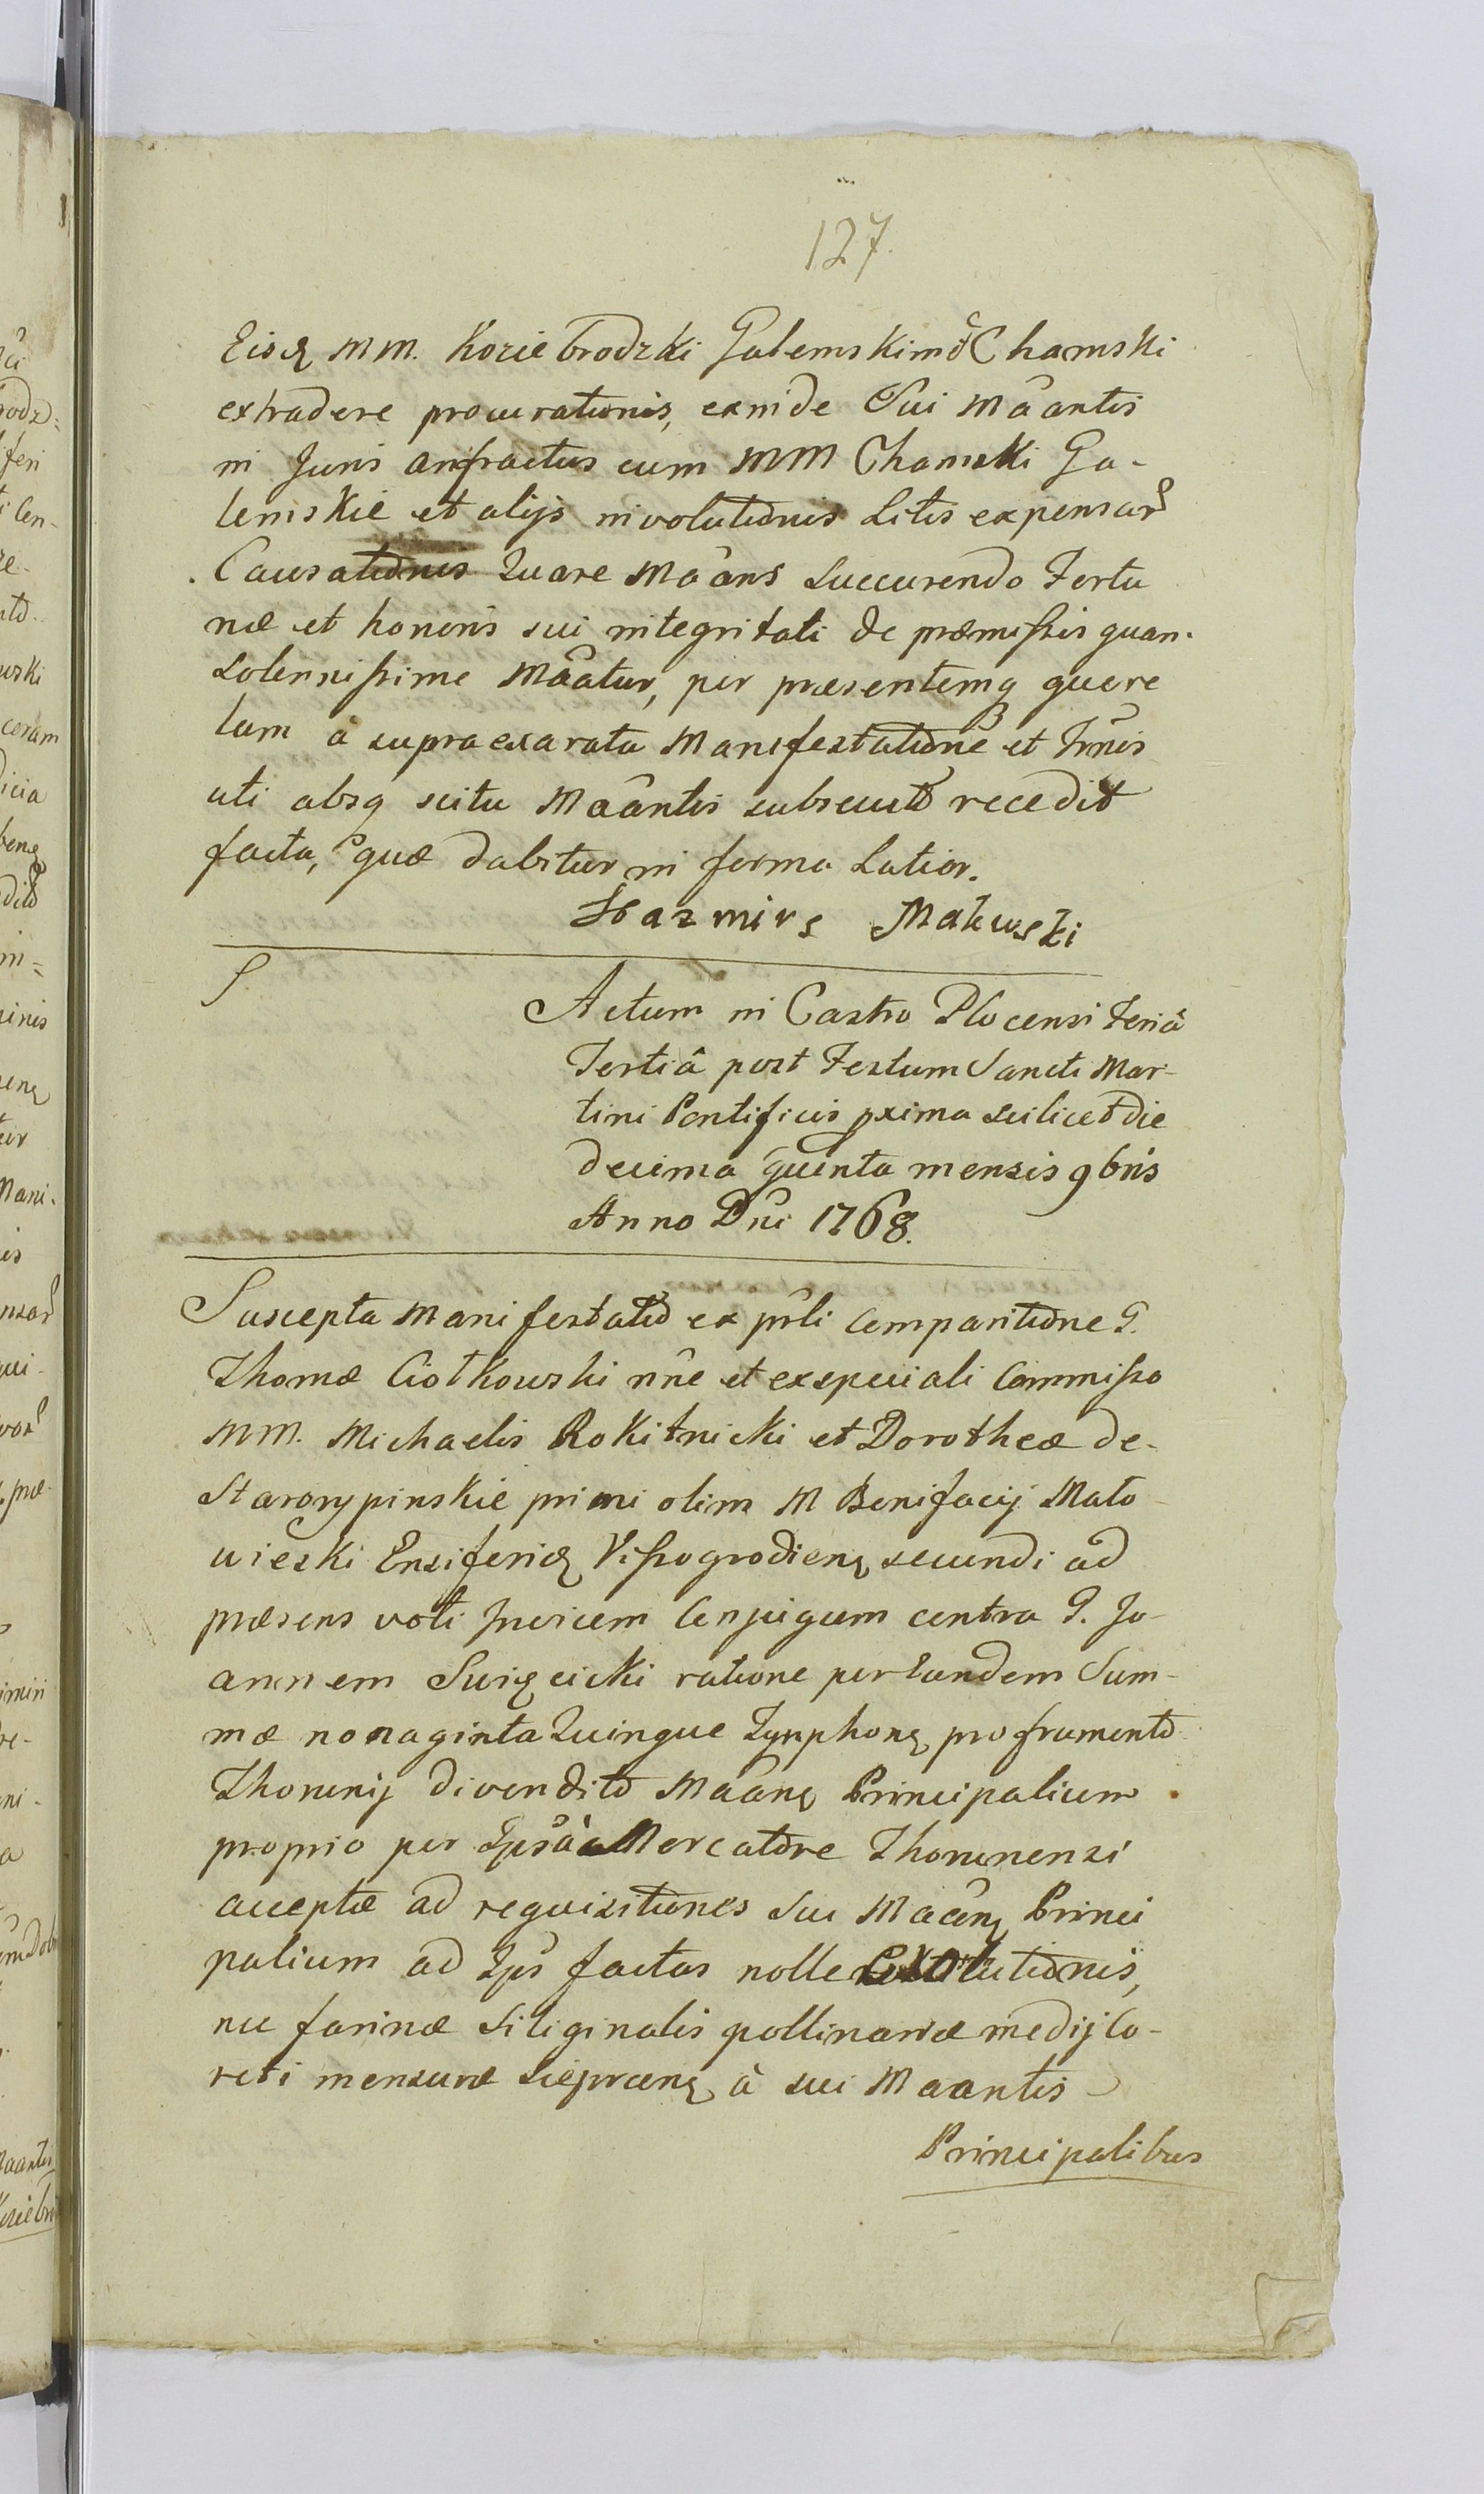 127.
Eisq MM. Koziebrodzki Galemskim & Chamski
extradere procurationis, exinde Sui Mâantis
in Juris anfractus cum MM Chamski Ga-
lemskie et alijs involutionis Litis expensar
Causationis Quare Mâans Succurendo Fortu
næ et honoris sui integritati de præmissis quan.
Solennissime Mâatur, per præsentemq quere
lam a supra exarata Manifestatione et Jnnis
uti absq scitu Mâantis subsecuto recedit
facta, quæ dabitur in forma Latior.
Kazmirs Makuski
S
Actum in Castro Plocensi Feriâ
Tertiâ post Festum Sancti Mar-
tini Pontificis pxima scilicet die
decima quinta mensis 9bris
Anno Dni 1768.
Suscepta Manifestatio ex prli Comparitione G.
Thomæ Ciołkowski nne et ex speciali Commisso
MM. Michaelis Rokitnicki et Dorotheæ de-
Starorypinskie primi olim M Bonifacij Mało
wieski Ensiferidæ Vissogrodienq secundi ad
præsens voti Jnvicem Conjugum contra G. Jo-
annem Swięcicki ratione per Eundem Sum-
mæ nonaginta Quinque Tynphonq pro frumento
Thorunij divendito Mâanq Principalium
proprio per Ipsu â Mercatore Thorunensi
acceptæ ad requisitiones Sui Mâanq Princi
palium ad Ips factas nolle Exolutionis,
nec farinæ Siliginalis pollinariæ medij Co-
reti mensuræ Sieprcenq à sui Maantis
Principalibus